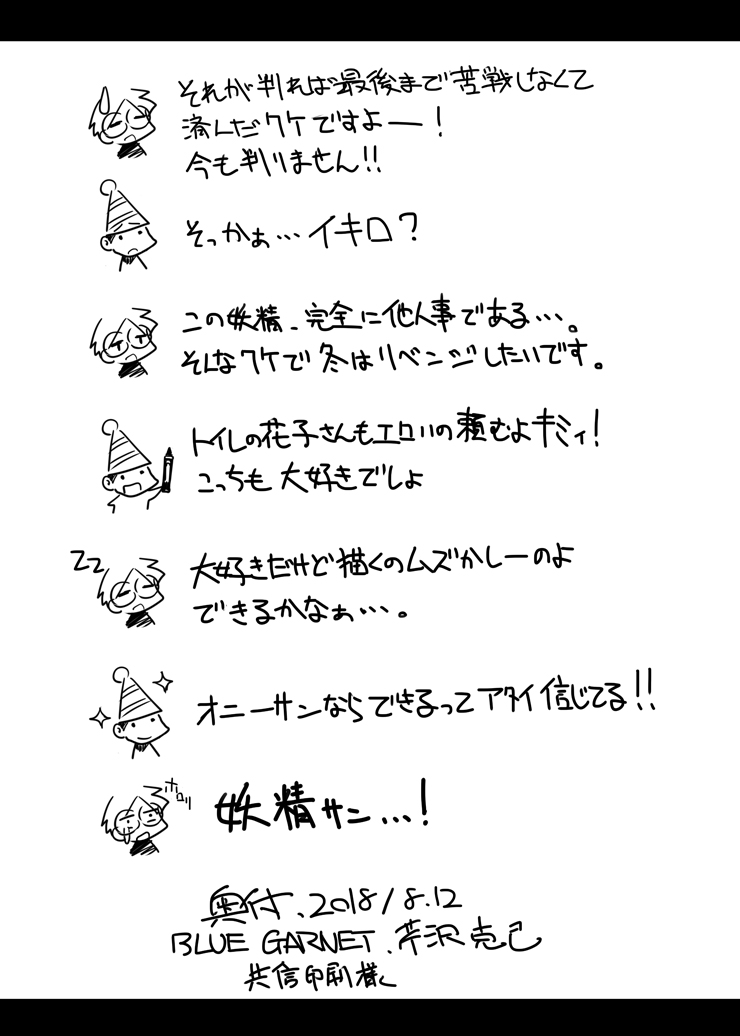 それが判れば最後まで苦戦しなくて
済んだワケですよー!
今も判りません!!
そっかぁ…イキロ?
この妖精、完全に他人事である…。
そんなワケで冬はリベンジしたいです。
トイレの花子さんもエロいの頼むよキミィ!
こっちも大好きでしょ
ZZ
大好きだけど描くのムズかしーのよ
できるかなぁ…。
オニーサンならできるってアタイ信じてる!!
ホロリ
妖精サン…!
奥付、2018/8.12
BLUE GARNET、芹沢克己
共信印刷様